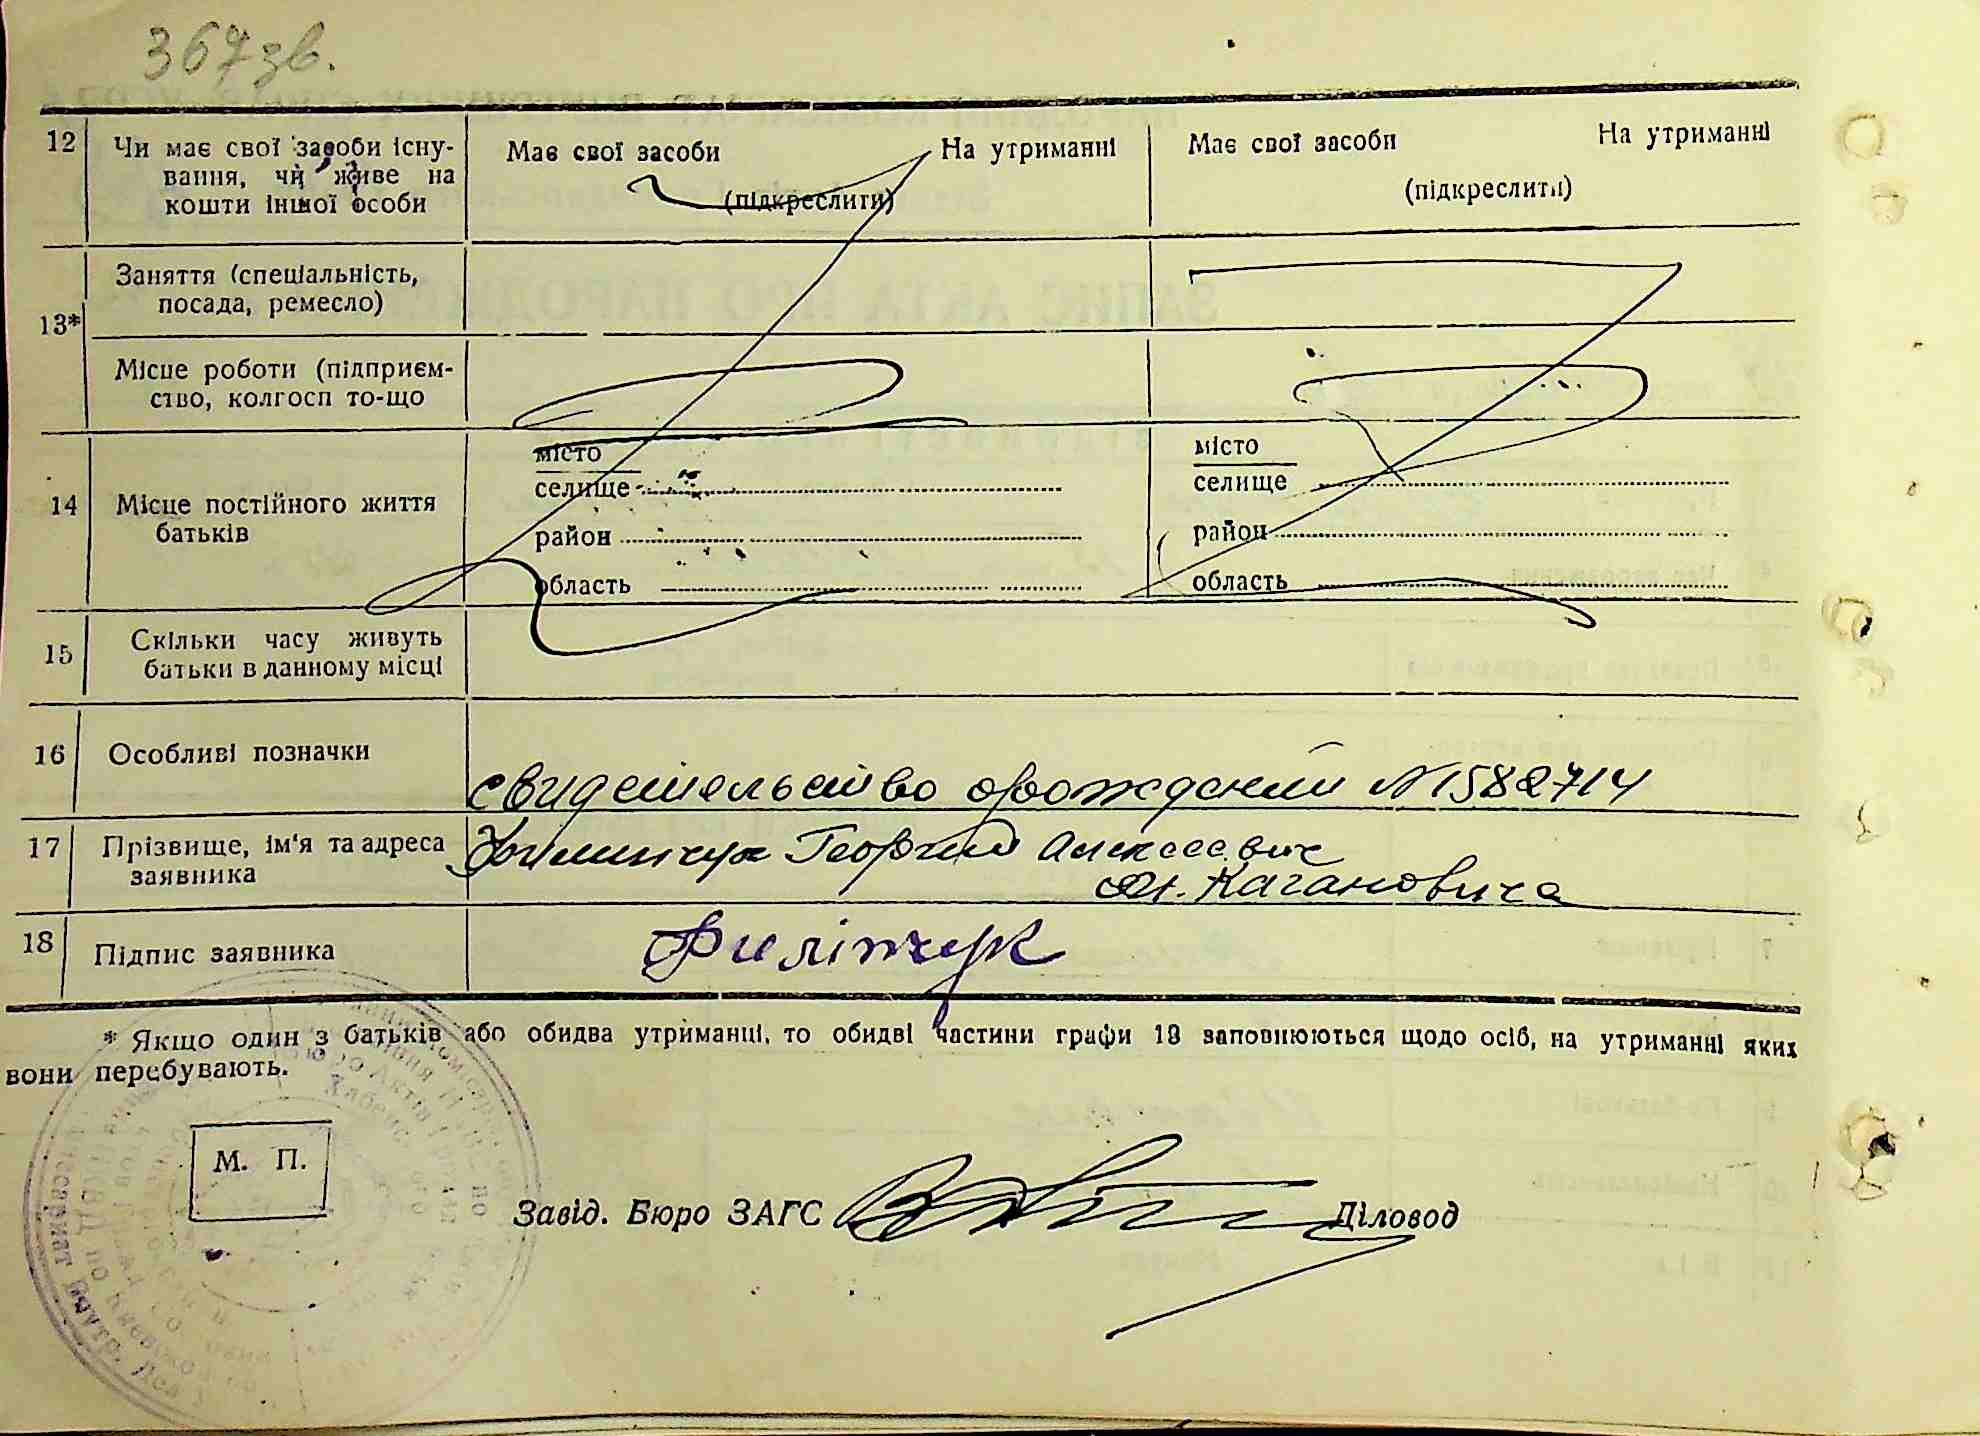 367 зв.
12 Чи має свої засоби існу- Має свої засоби На утриманні Має свої засоби На утриманні
вання, чи живе на (підкреслити) (підкреслити)
кошти іншої особи
13* Заняття (спеціальність,
посада, ремесло)
Місце роботи (підприєм-
ство, колгосп то-що
14 Місце постійного життя
батьків
місто місто
селище селище
район район
область область
15 Скільки часу живуть
батьки в данному місці
16 Особливі позначки
свидетельство о рождении №1582714
17 Прізвище, ім'я та адреса Филипчук Георгий Алексеевич
заявника Кагановича
18 Підпис заявника Филіпчук
* Якщо один з батьків або обидва утриманці, то обидві частини графи 13 заповнюються щодо осіб, на утриманні яких
вони перебувають.
М. П.
Завід. Бюро ЗАГС Діловод